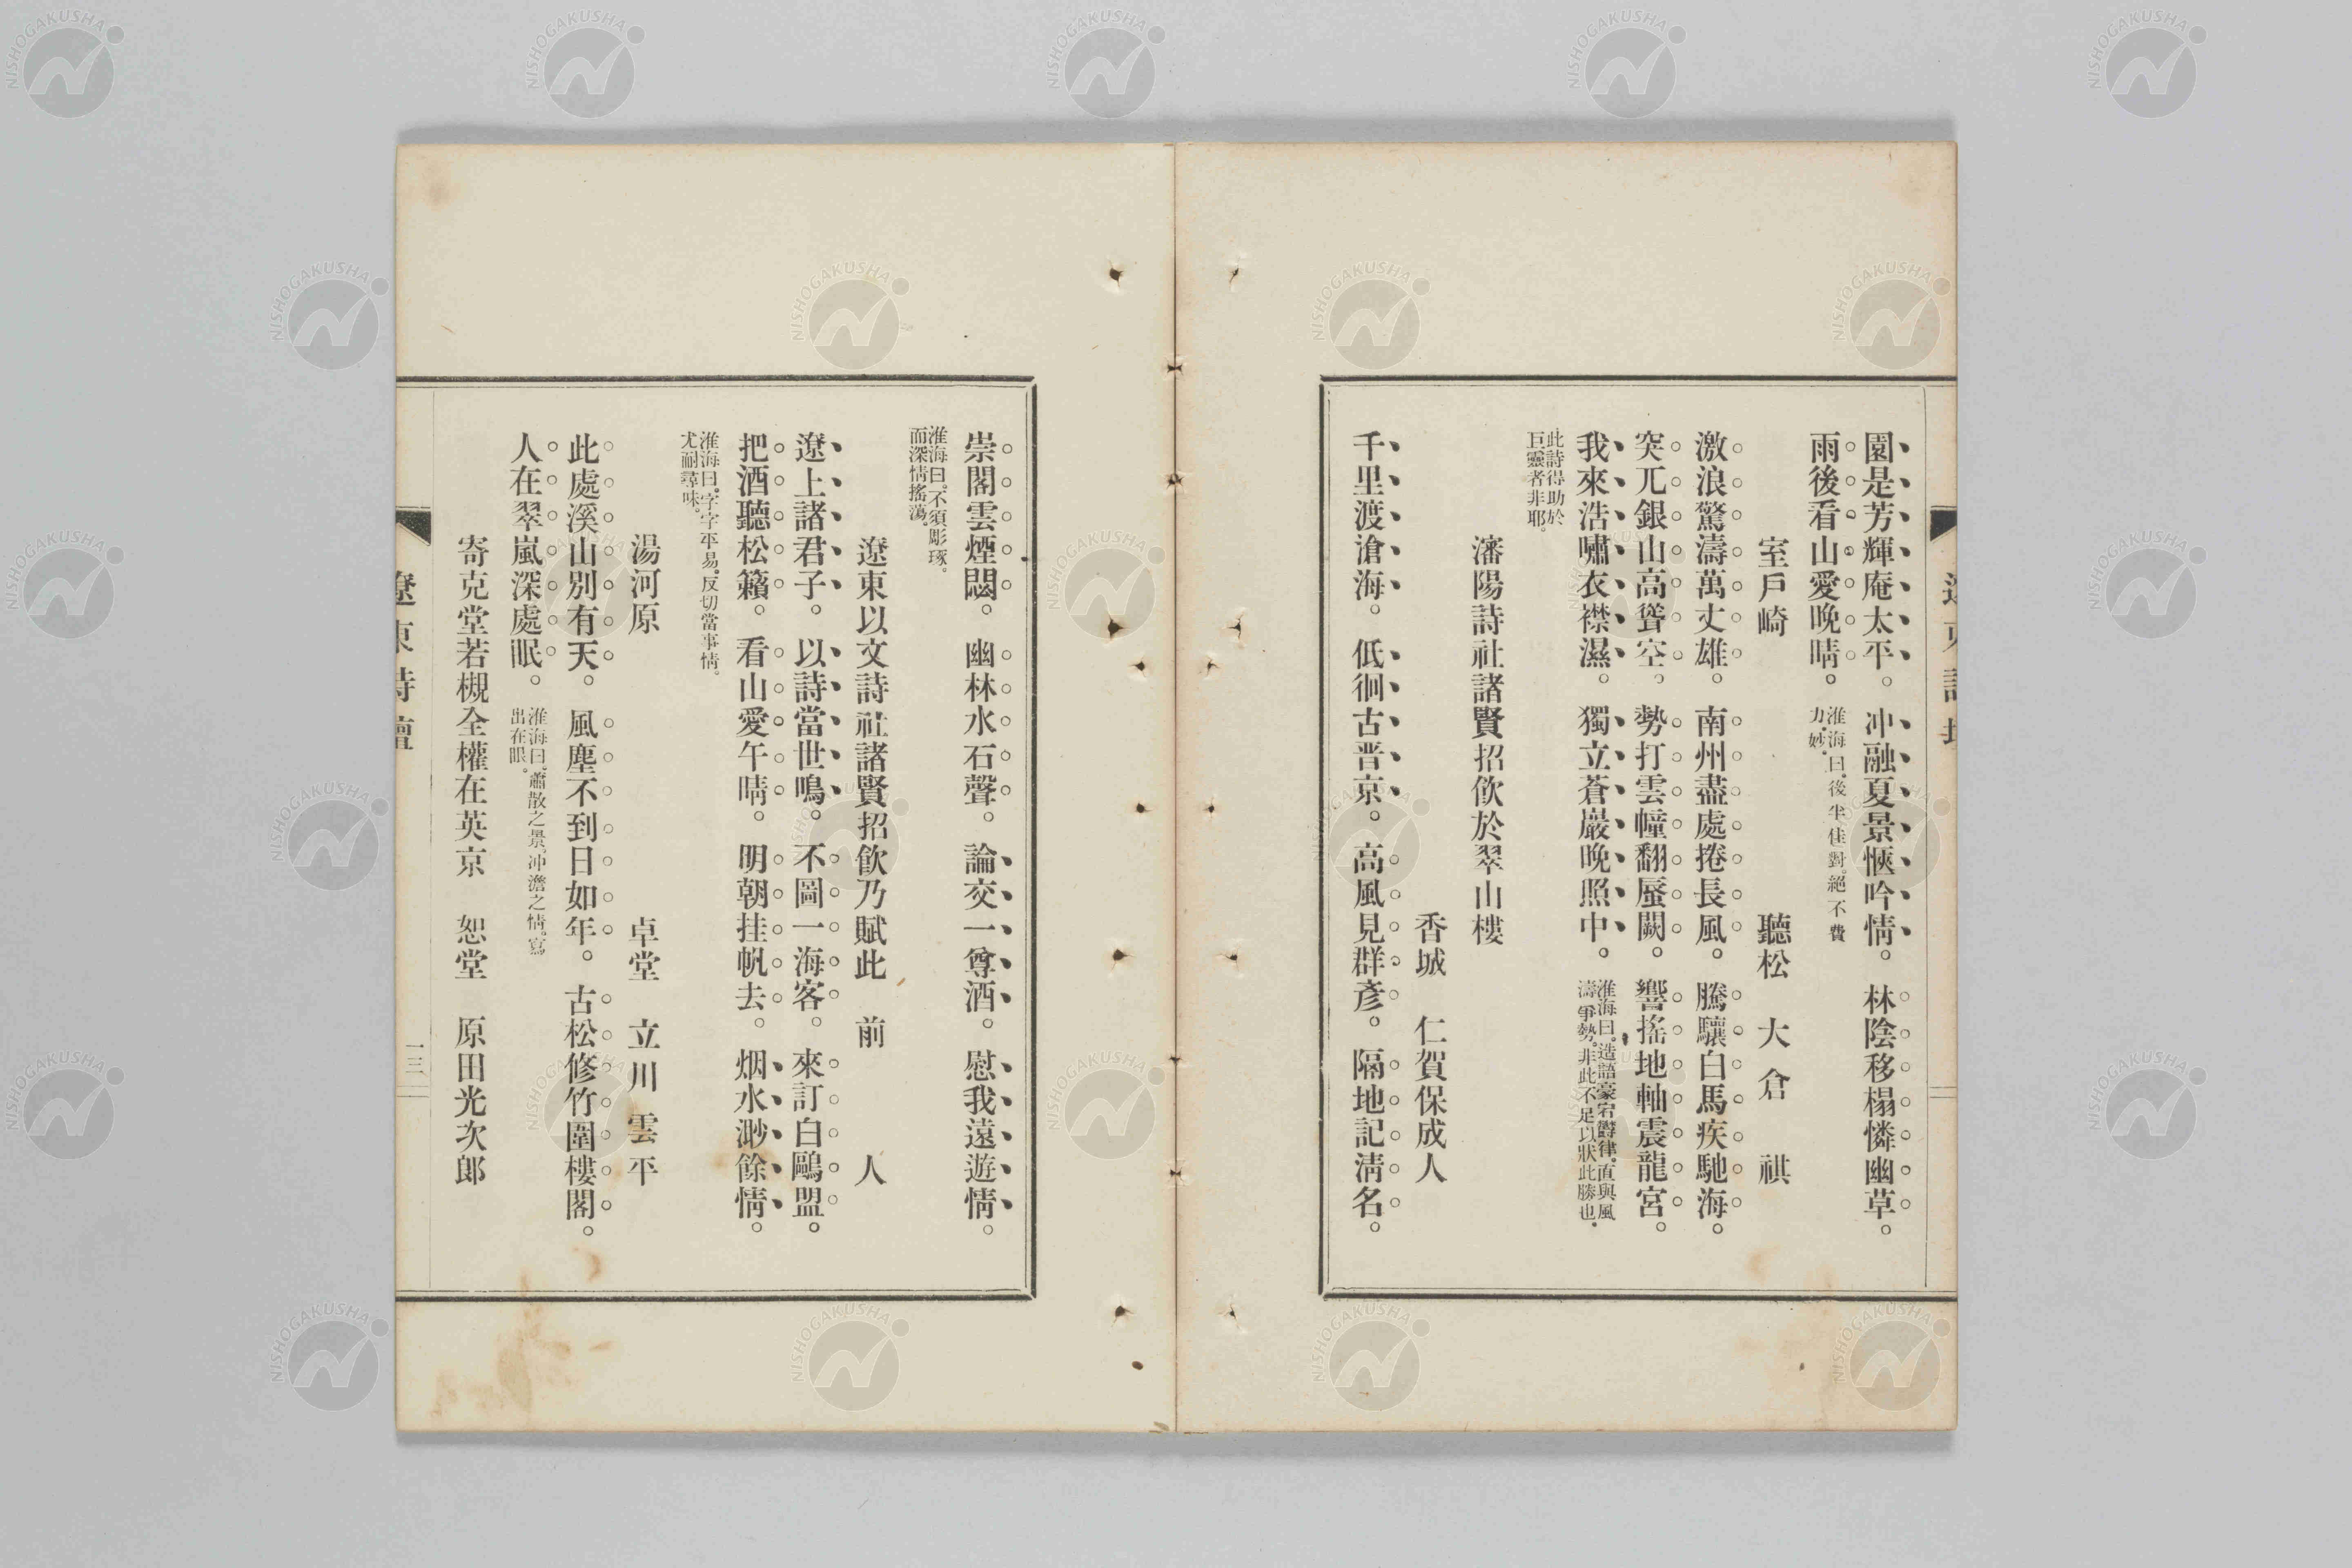 園是芳輝庵太平。冲融夏景愜吟情。林陰移榻憐幽草。
雨後看山愛晩晴。淮海曰。後半佳對。絕不費
力。妙。
室戶崎 聽松 大倉 祺
激浪驚濤萬丈雄。南州盡處捲長風。騰驤白馬疾馳海。
突兀銀山高聳空。勢打雲幢翻蜃闕。響搖地軸震龍宮。
我來浩嘯衣襟濕。獨立蒼巖晩照中。淮海曰。造語豪宕欝律。直與風
濤爭勢。非此不足以狀此勝也。
此詩得助於
巨靈者非耶。
瀋陽詩社諸賢招飮於翠山樓
香城 仁賀保成人
千里渡滄海。低徊古晋京。高風見群彥。隔地記淸名。
崇閣雲煙悶。幽林水石聲。論交一尊酒。慰我遠遊情。
淮海曰。不須彫琢。
而深情搖蕩。
遼東以文詩社諸賢招飮乃賦此 前 人
遼上諸君子。以詩當世鳴。不圖一海客。來訂白鷗盟。
把酒聽松籟。看山愛午晴。明朝挂帆去。烟水渺餘情。
淮海曰。字字平易。反切當事情。
尤耐尋味。
湯河原 卓堂 立川雲平
此處溪山別有天。風塵不到日如年。古松修竹圍樓閣。
人在翠嵐深處眠。淮海曰。蕭散之景。冲澹之情。寫
出在眼。
寄克堂若槻全權在英京 恕堂 原田光次郎
遼東詩壇 一三